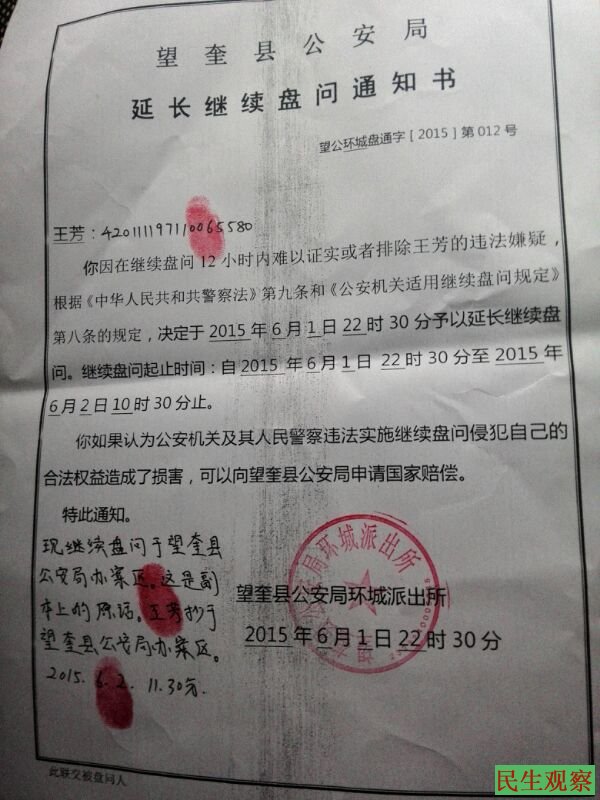 望奎县公安局
延长继续盘问通知书
望公环城盘通字［2015］第012号
王芳：420111197110065580
你因在继续盘问12小时内难以证实或者排除王芳的违法嫌疑，
根据《中华人民共和共警察法》第九条和《公安机关适用继续盘问规定》
第八条的规定，决定于2015年6月1日22时30分予以延长继续盘
问。继续盘问起止时间：自2015年6月1日22时30分至2015年
6月2日10时30分止。
你如果认为公安机关及其人民警察违法实施继续盘问侵犯自己的
合法权益造成了损害，可以向望奎县公安局申请国家赔偿。
特此通知。
现继续盘问于望奎县
公安局办案区。这是副
本上的原话。王芳抄于
望奎县公安局办案区。
2015.6.2.11.30分.
局环城派出所
望奎县公安局环城派出所
2015年6月1日22时30分
此联交被盘问人
民生观察